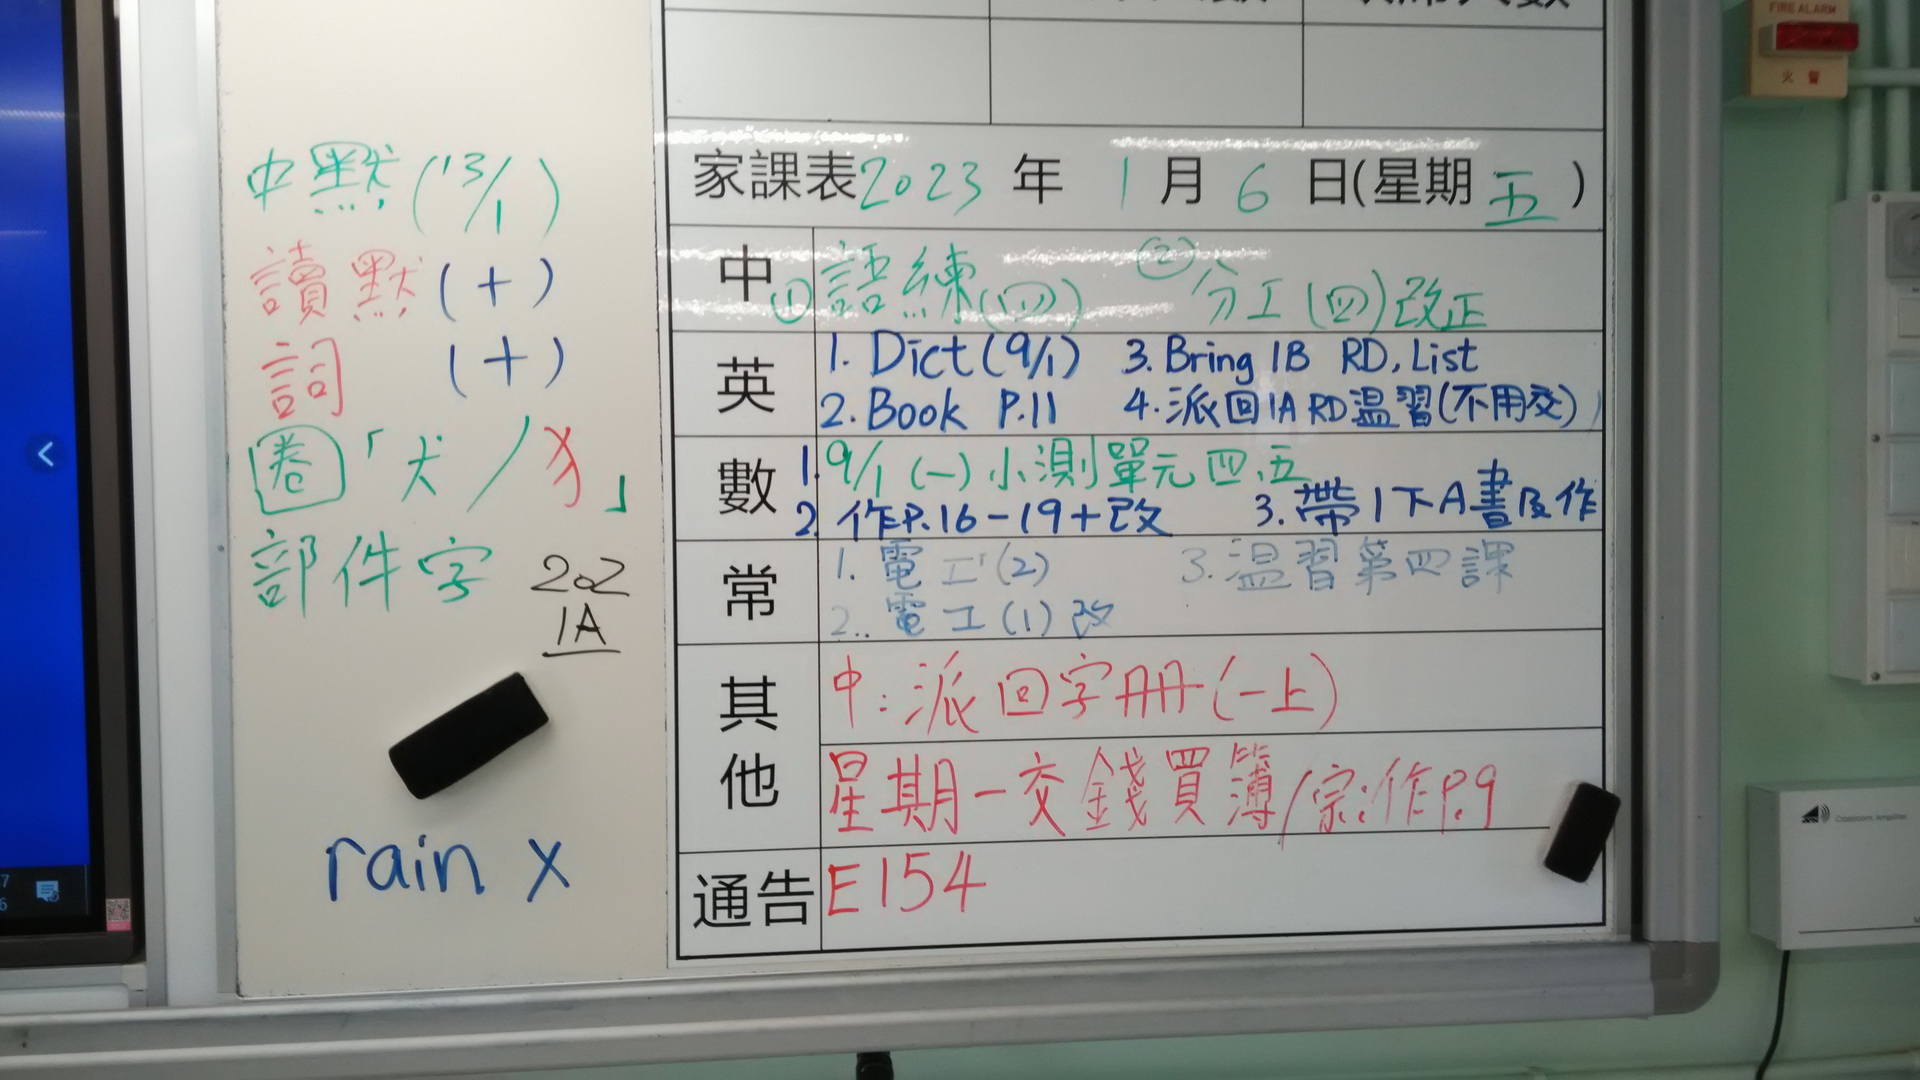 中默(13/1)
讀默(+)
詞 (+)
圈「犬/犭」
部件字
202
1A
rain x
家課表2023年1月6日(星期五)
中 ①語練(四) ②分工(四)改正
英 1. Dict (9/1) 3. Bring 1B RD, List
2. Book P.11 4. 派回1A RD温習(不用交)
數 1. 9/1 (一) 小測單元四、五
2. 作P.16-19+改 3. 帶1下A書及作
常 1. 電工(2) 3. 温習第四課
2. 電工(1)改
其他 中:派回字冊(一上)
星期一交錢買簿/宗:作P.9
通告 E154
FIRE ALARM
火警